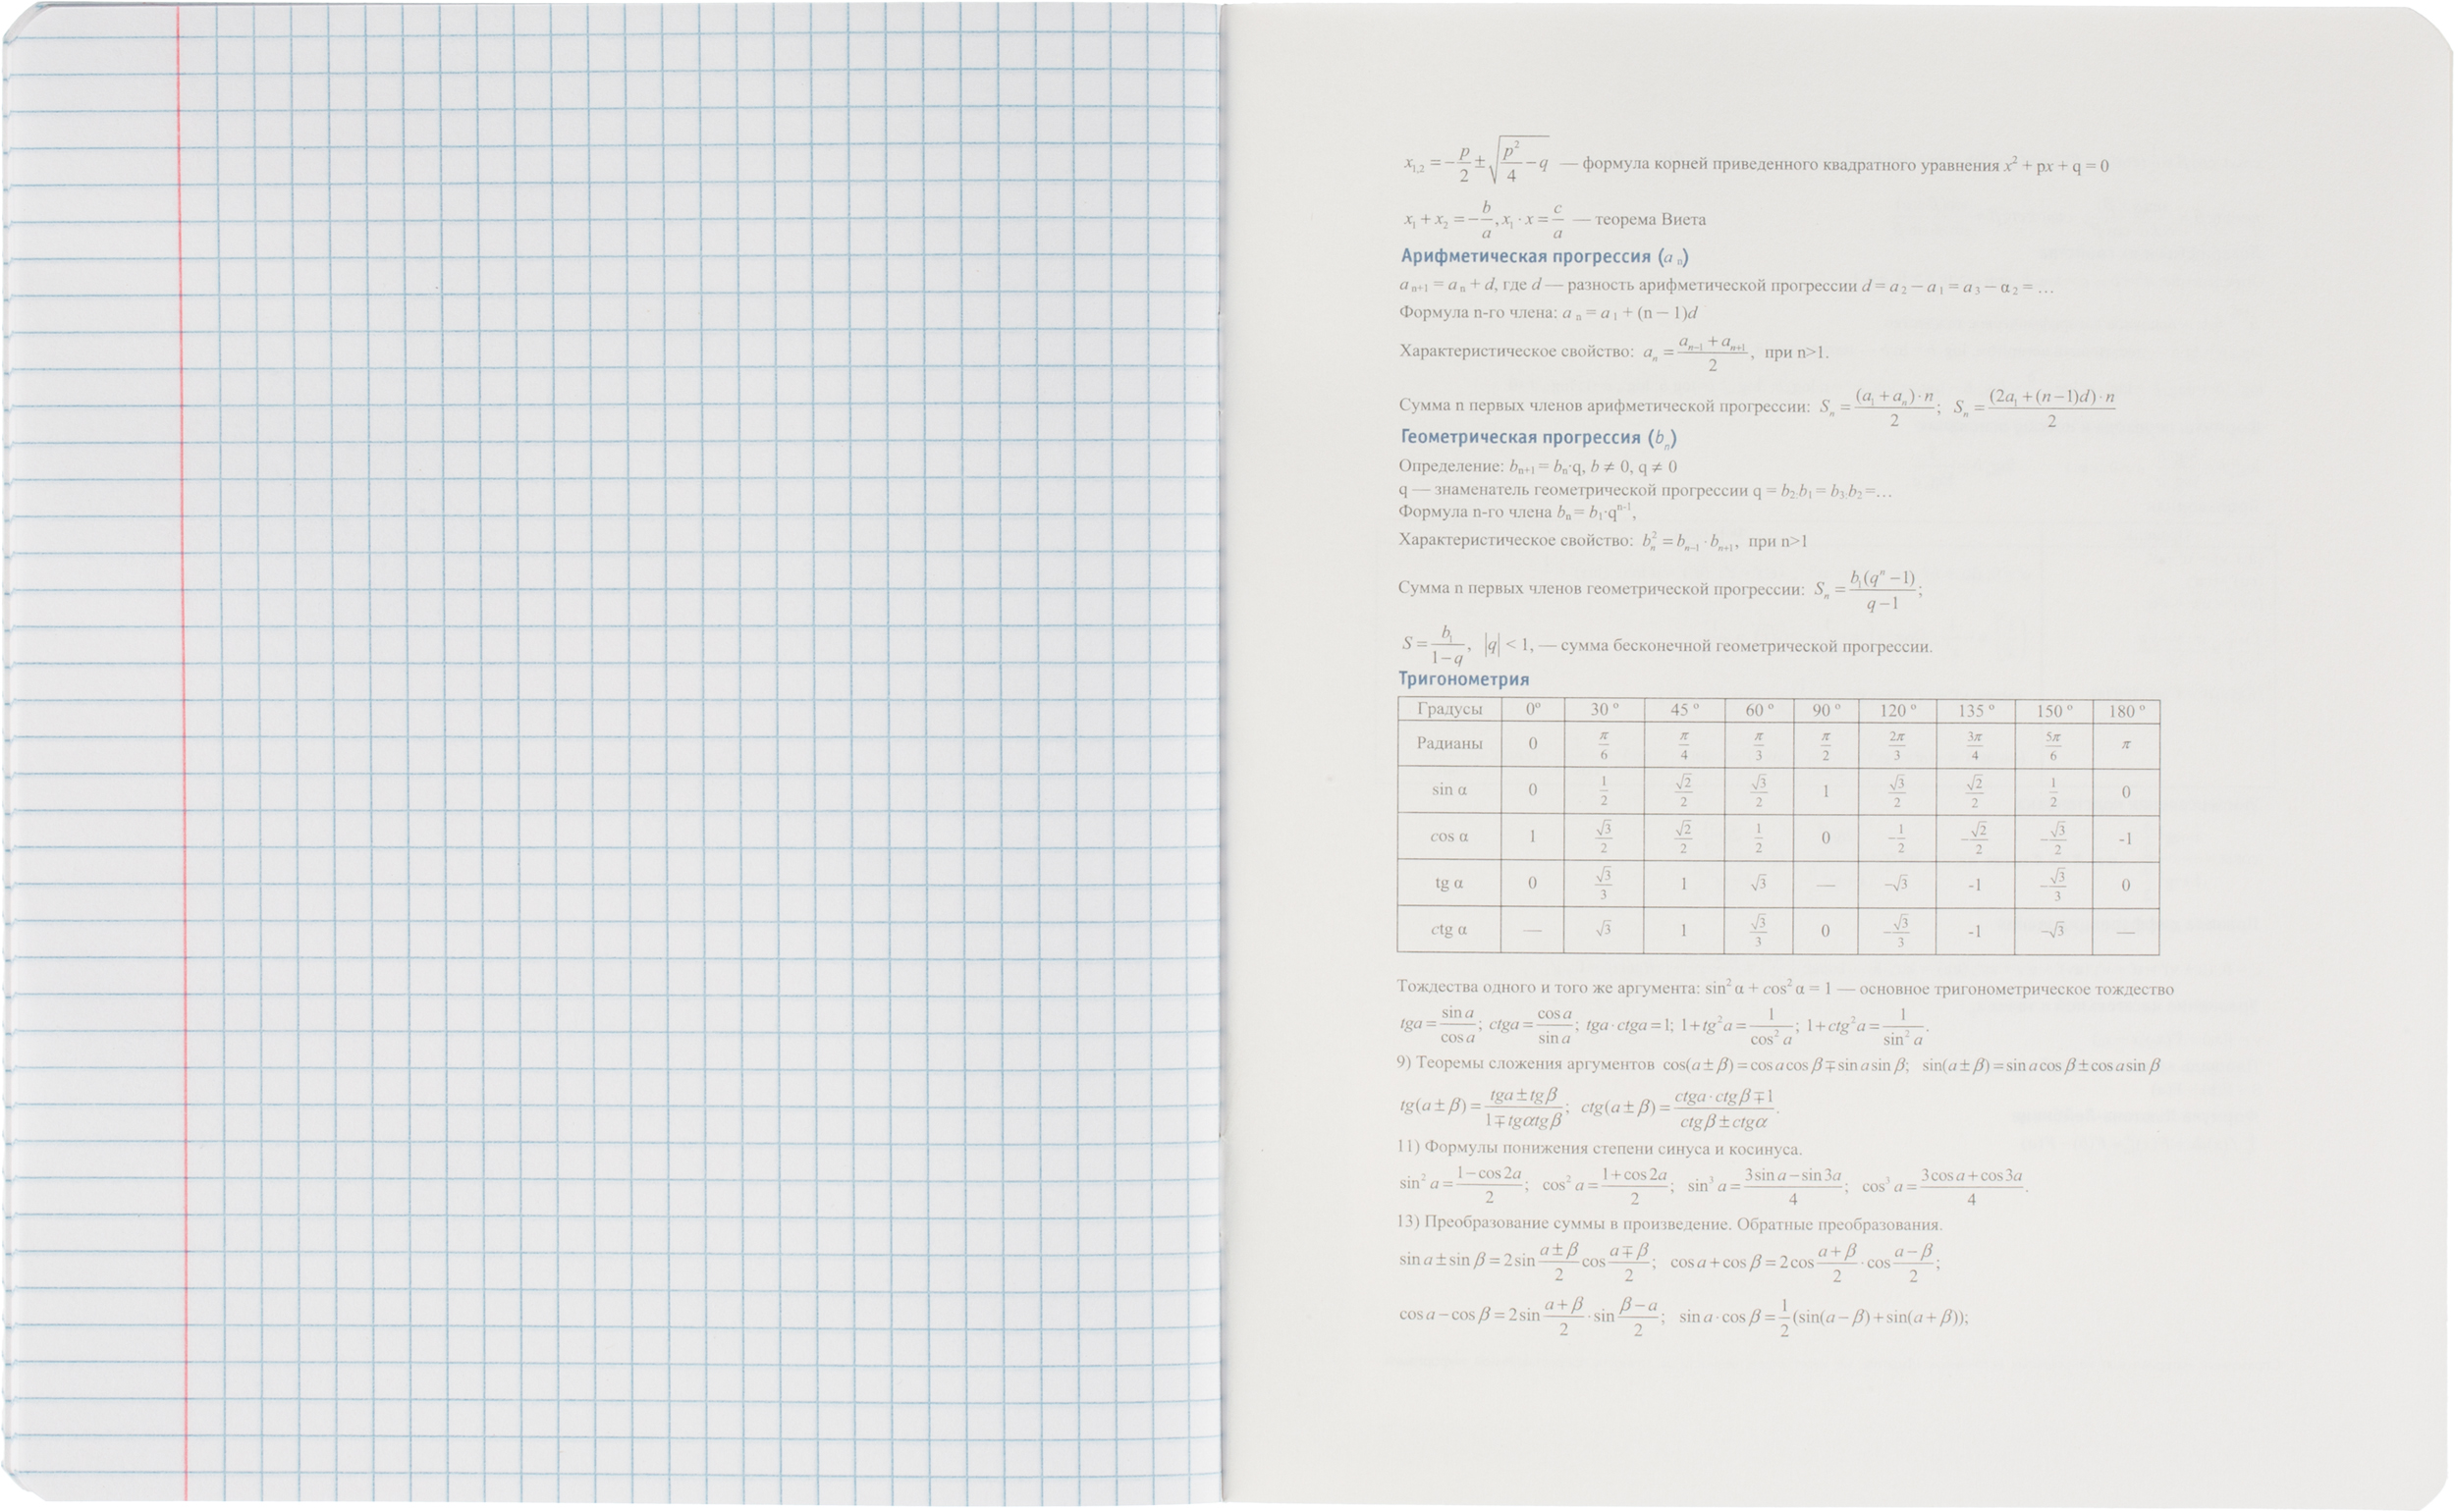 x₁,₂ = −p/2 ± √(p²/4 − q) — формула корней приведенного квадратного уравнения x² + px + q = 0
x₁ + x₂ = −b/a, x₁ · x = c/a — теорема Виета
Арифметическая прогрессия (a ₙ)
a ₙ₊₁ = a ₙ + d, где d — разность арифметической прогрессии d = a ₂ − a ₁ = a ₃ − α ₂ = …
Формула n-го члена: a ₙ = a ₁ + (n − 1)d
Характеристическое свойство: aₙ = (aₙ₋₁ + aₙ₊₁)/2, при n>1.
Сумма n первых членов арифметической прогрессии: Sₙ = (a₁ + aₙ) · n/2; Sₙ = (2a₁ + (n−1)d) · n/2
Геометрическая прогрессия (bₙ)
Определение: bₙ₊₁ = bₙ·q, b ≠ 0, q ≠ 0
q — знаменатель геометрической прогрессии q = b₂:b₁ = b₃:b₂ =…
Формула n-го члена bₙ = b₁·qⁿ⁻¹,
Характеристическое свойство: bₙ² = bₙ₋₁ · bₙ₊₁, при n>1
Сумма n первых членов геометрической прогрессии: Sₙ = b₁(qⁿ − 1)/(q − 1);
S = b₁/(1−q), |q| < 1, — сумма бесконечной геометрической прогрессии.
Тригонометрия
Градусы 0° 30 ° 45 ° 60 ° 90 ° 120 ° 135 ° 150 ° 180 °
Радианы 0 π/6 π/4 π/3 π/2 2π/3 3π/4 5π/6 π
sin α 0 1/2 √2/2 √3/2 1 √3/2 √2/2 1/2 0
cos α 1 √3/2 √2/2 1/2 0 −1/2 −√2/2 −√3/2 -1
tg α 0 √3/3 1 √3 — −√3 -1 −√3/3 0
ctg α — √3 1 √3/3 0 −√3/3 -1 −√3 —
Тождества одного и того же аргумента: sin² α + cos² α = 1 — основное тригонометрическое тождество
tga = sin a/cos a; ctga = cos a/sin a; tga · ctga = 1; 1 + tg²a = 1/cos² a; 1 + ctg²a = 1/sin² a.
9) Теоремы сложения аргументов cos(a ± β) = cos a cos β ∓ sin a sin β; sin(a ± β) = sin a cos β ± cos a sin β
tg(a ± β) = (tga ± tgβ)/(1 ∓ tgαtgβ); ctg(a ± β) = (ctga · ctgβ ∓ 1)/(ctgβ ± ctgα).
11) Формулы понижения степени синуса и косинуса.
sin² a = (1 − cos 2a)/2; cos² a = (1 + cos 2a)/2; sin³ a = (3 sin a − sin 3a)/4; cos³ a = (3 cos a + cos 3a)/4.
13) Преобразование суммы в произведение. Обратные преобразования.
sin a ± sin β = 2 sin (a ± β)/2 cos (a ∓ β)/2; cos a + cos β = 2 cos (a + β)/2 · cos (a − β)/2;
cos a − cos β = 2 sin (a + β)/2 · sin (β − a)/2; sin a · cos β = 1/2 (sin(a − β) + sin(a + β));